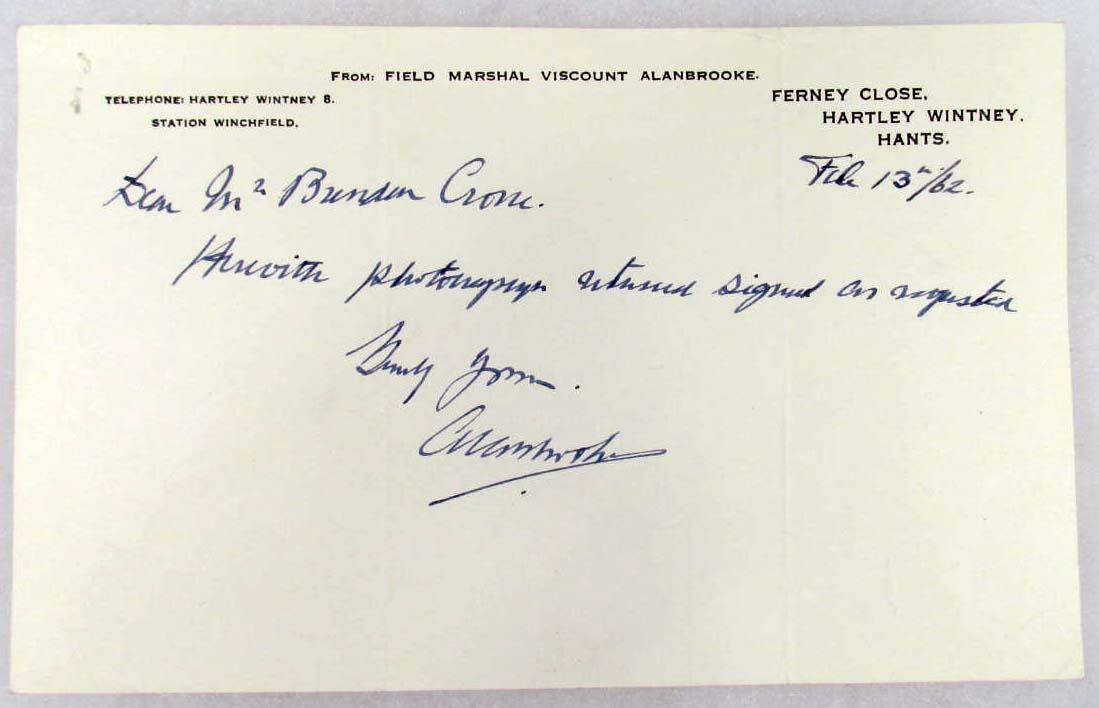 FROM: FIELD MARSHAL VISCOUNT ALANBROOKE.
TELEPHONE: HARTLEY WINTNEY 8.
STATION WINCHFIELD.
FERNEY CLOSE,
HARTLEY WINTNEY.
HANTS.
Feb 13th/62.
Dear Mr Crone.
Herewith photograph returned signed as requested
Yours.
Alanbrooke